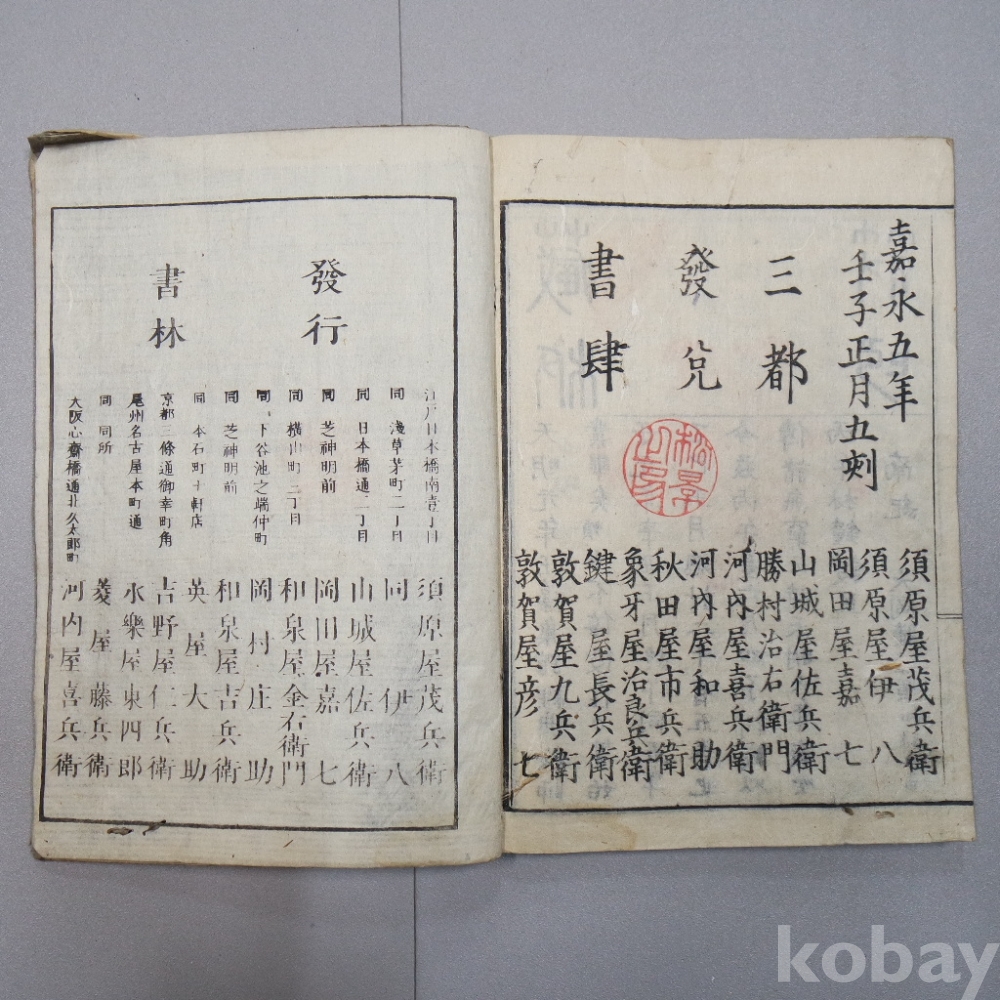 嘉永五年
壬子正月五刻
三都
發兌
書肆
須原屋茂兵衛
須原屋伊八
岡田屋嘉七
山城屋佐兵衛
勝村治右衛門
河內屋喜兵衛
河內屋和助
秋田屋市兵衛
象牙屋治良兵衛
鍵屋長兵衛
敦賀屋九兵衛
敦賀屋彦七
發行
書林
江戸日本橋南壹丁目 須原屋茂兵衛
同 淺草茅町二丁目 同伊八
同 日本橋通二丁目 山城屋佐兵衛
同 芝神明前 岡田屋嘉七
同 橫山町三丁目 和泉屋金右衛門
同 下谷池之端仲町 岡村庄助
同 芝神明前 和泉屋吉兵衛
同 本石町十軒店 英屋大助
京都三條通御幸町角 吉野屋仁兵衛
尾州名古屋本町通 永樂屋東四郎
同 同所 菱屋藤兵衛
大阪心齋橋通北久太郎町 河内屋喜兵衛
kobay